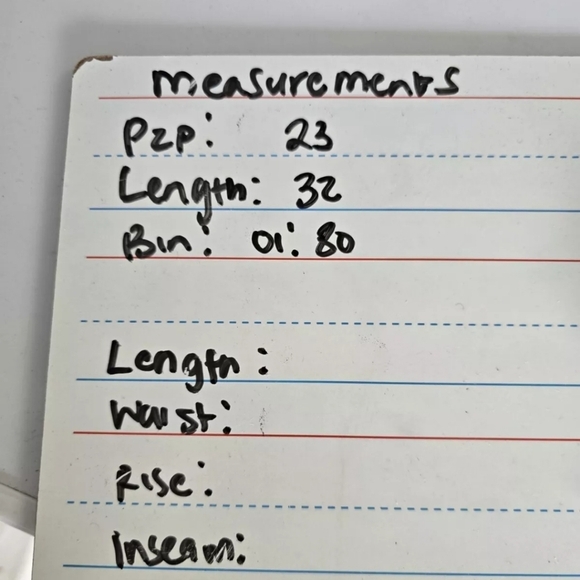 measurements
P2P: 23
Length: 32
Bin: 01: 80
Length:
Waist:
Rise:
Inseam: